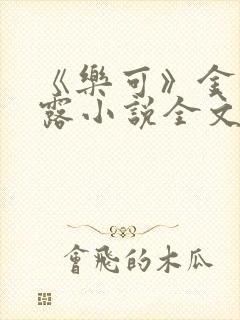 《樂可》金
露小說全文
會飛的木瓜